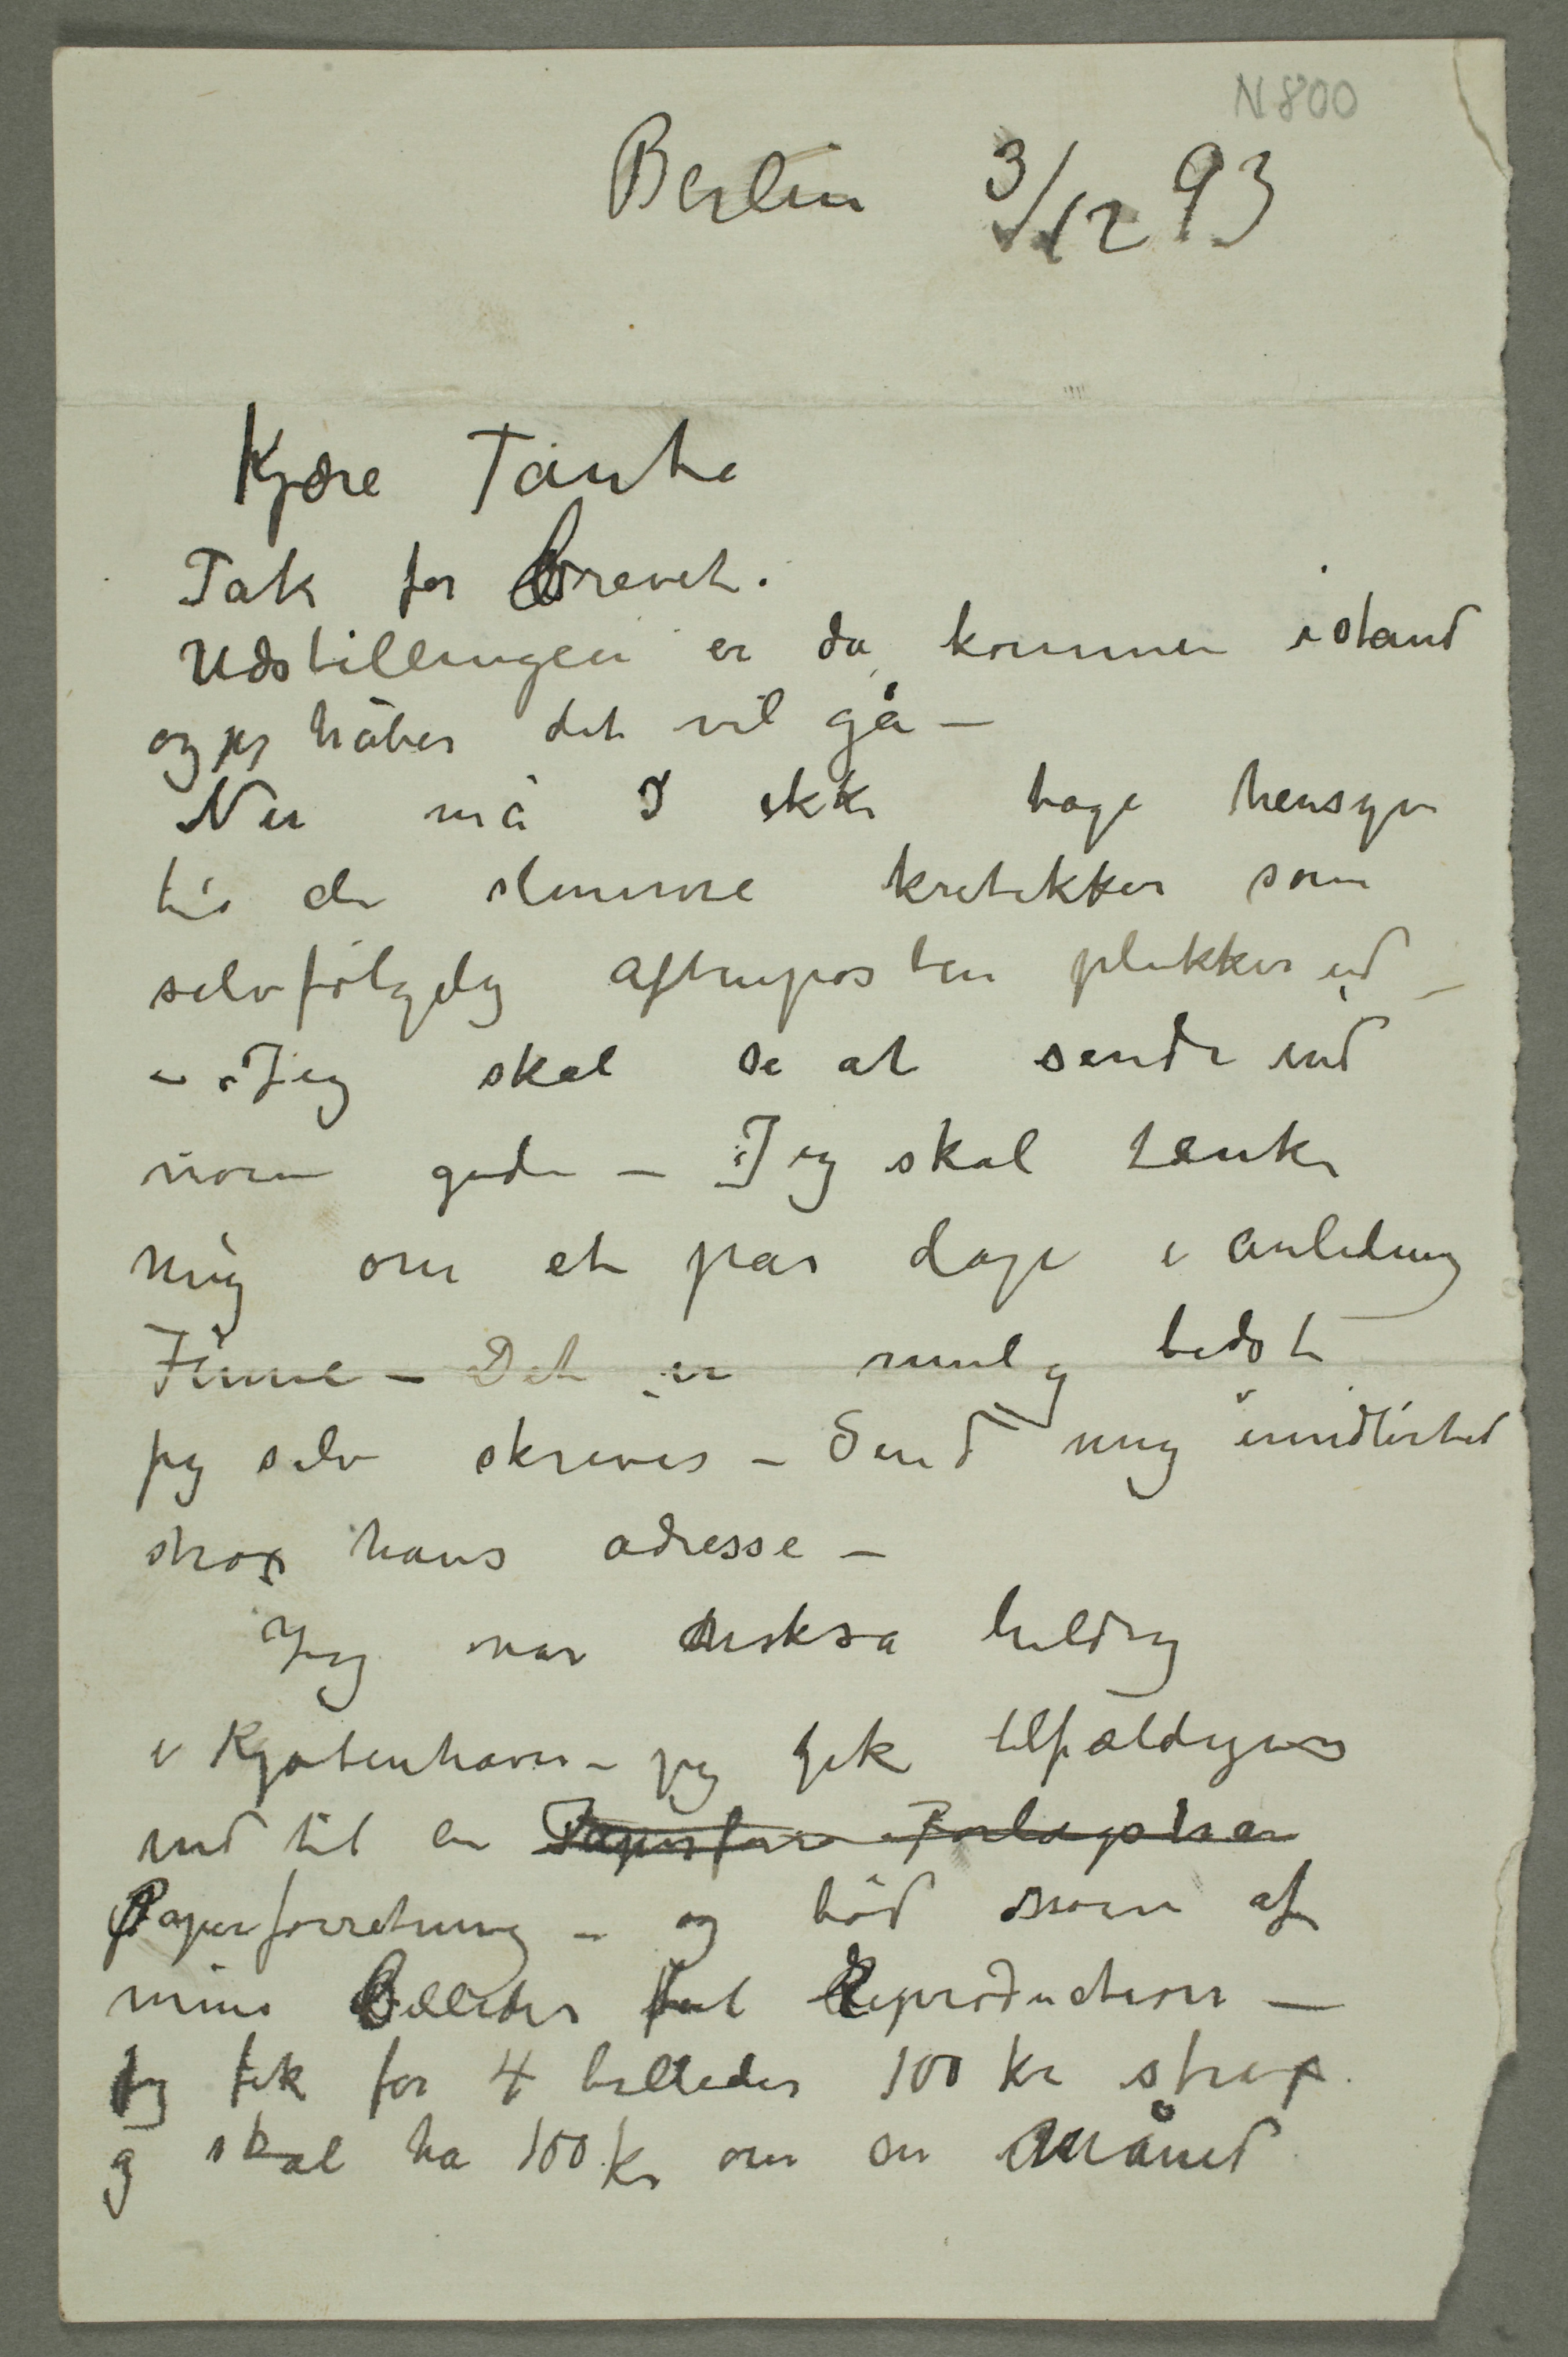 N 800
Berlin 3/12 93
Kjære Tante
Tak for Brevet.
Udstillingen er da kommen istand
og jeg håber det vil gå –
Nu må I ikke tage hensyn
til de slemme kritikker som
selvfølgelig Aftenposten plukker ud –
– Jeg skal se at sende ind
noen gode – Jeg skal tænke
mig om et par dage i anledning
Finne – Det er muligt bedst
jeg selv skriver – Send mig imidlertid
strax hans adresse –
Jeg var också heldig
i Kjøbenhavn – jeg gik tilfældigvis
ind til en Papirforr Forlagstren
Papirforretning – og bød noen af
mine Billeder til Reproduction –
Jeg fik for 4 billeder 100 kr strax.
og skal ha 100 kr om en Måned